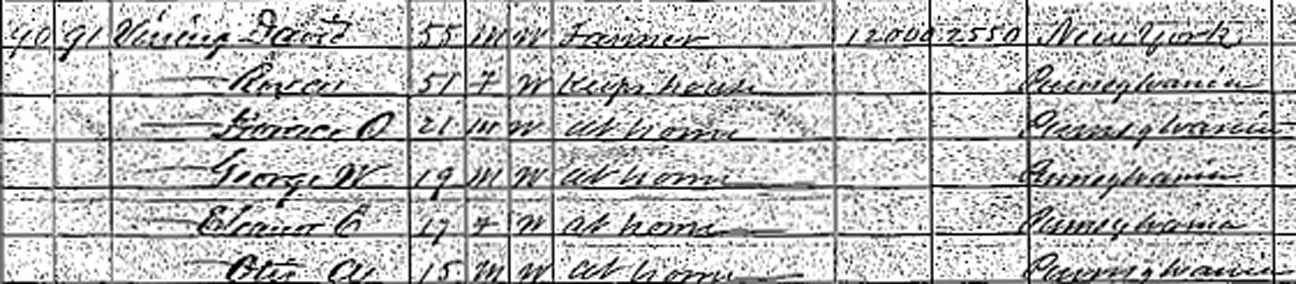 90 91 Vining David 55 M W Farmer 12000 2550 New York
— 51 F W Keeps house Pennsylvania
— O 21 M W at home Pennsylvania
— George W 19 M W at home Pennsylvania
— Eleanor C 17 F W at home Pennsylvania
— Otis A 15 M W at home Pennsylvania